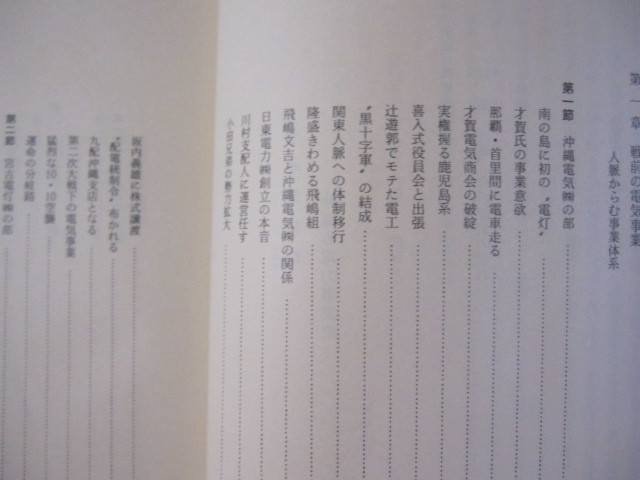 第一章 戦前の電気事業
人脈からむ事業体系
第一節 沖縄電気㈱の部
南の島に初の〝電灯〟
才賀氏の事業意欲
那覇・首里間に電車走る
才賀電気商会の破綻
実権握る鹿児島系
喜入式役員会と出張
辻遊郭でモテた電工
〝黒十字軍〟の結成
関東人脈への体制移行
隆盛きわめる飛嶋組
飛嶋文吉と沖縄電気㈱の関係
日東電力㈱創立の本音
川村支配人に運営任す
小田兄弟の勢力拡大
坂内義雄に株式譲渡
〝配電統制令〟布かれる
九配沖縄支店となる
第二次大戦下の電気事業
猛烈な10・10空襲
運命の分岐路
第二節 宮古電灯㈱の部